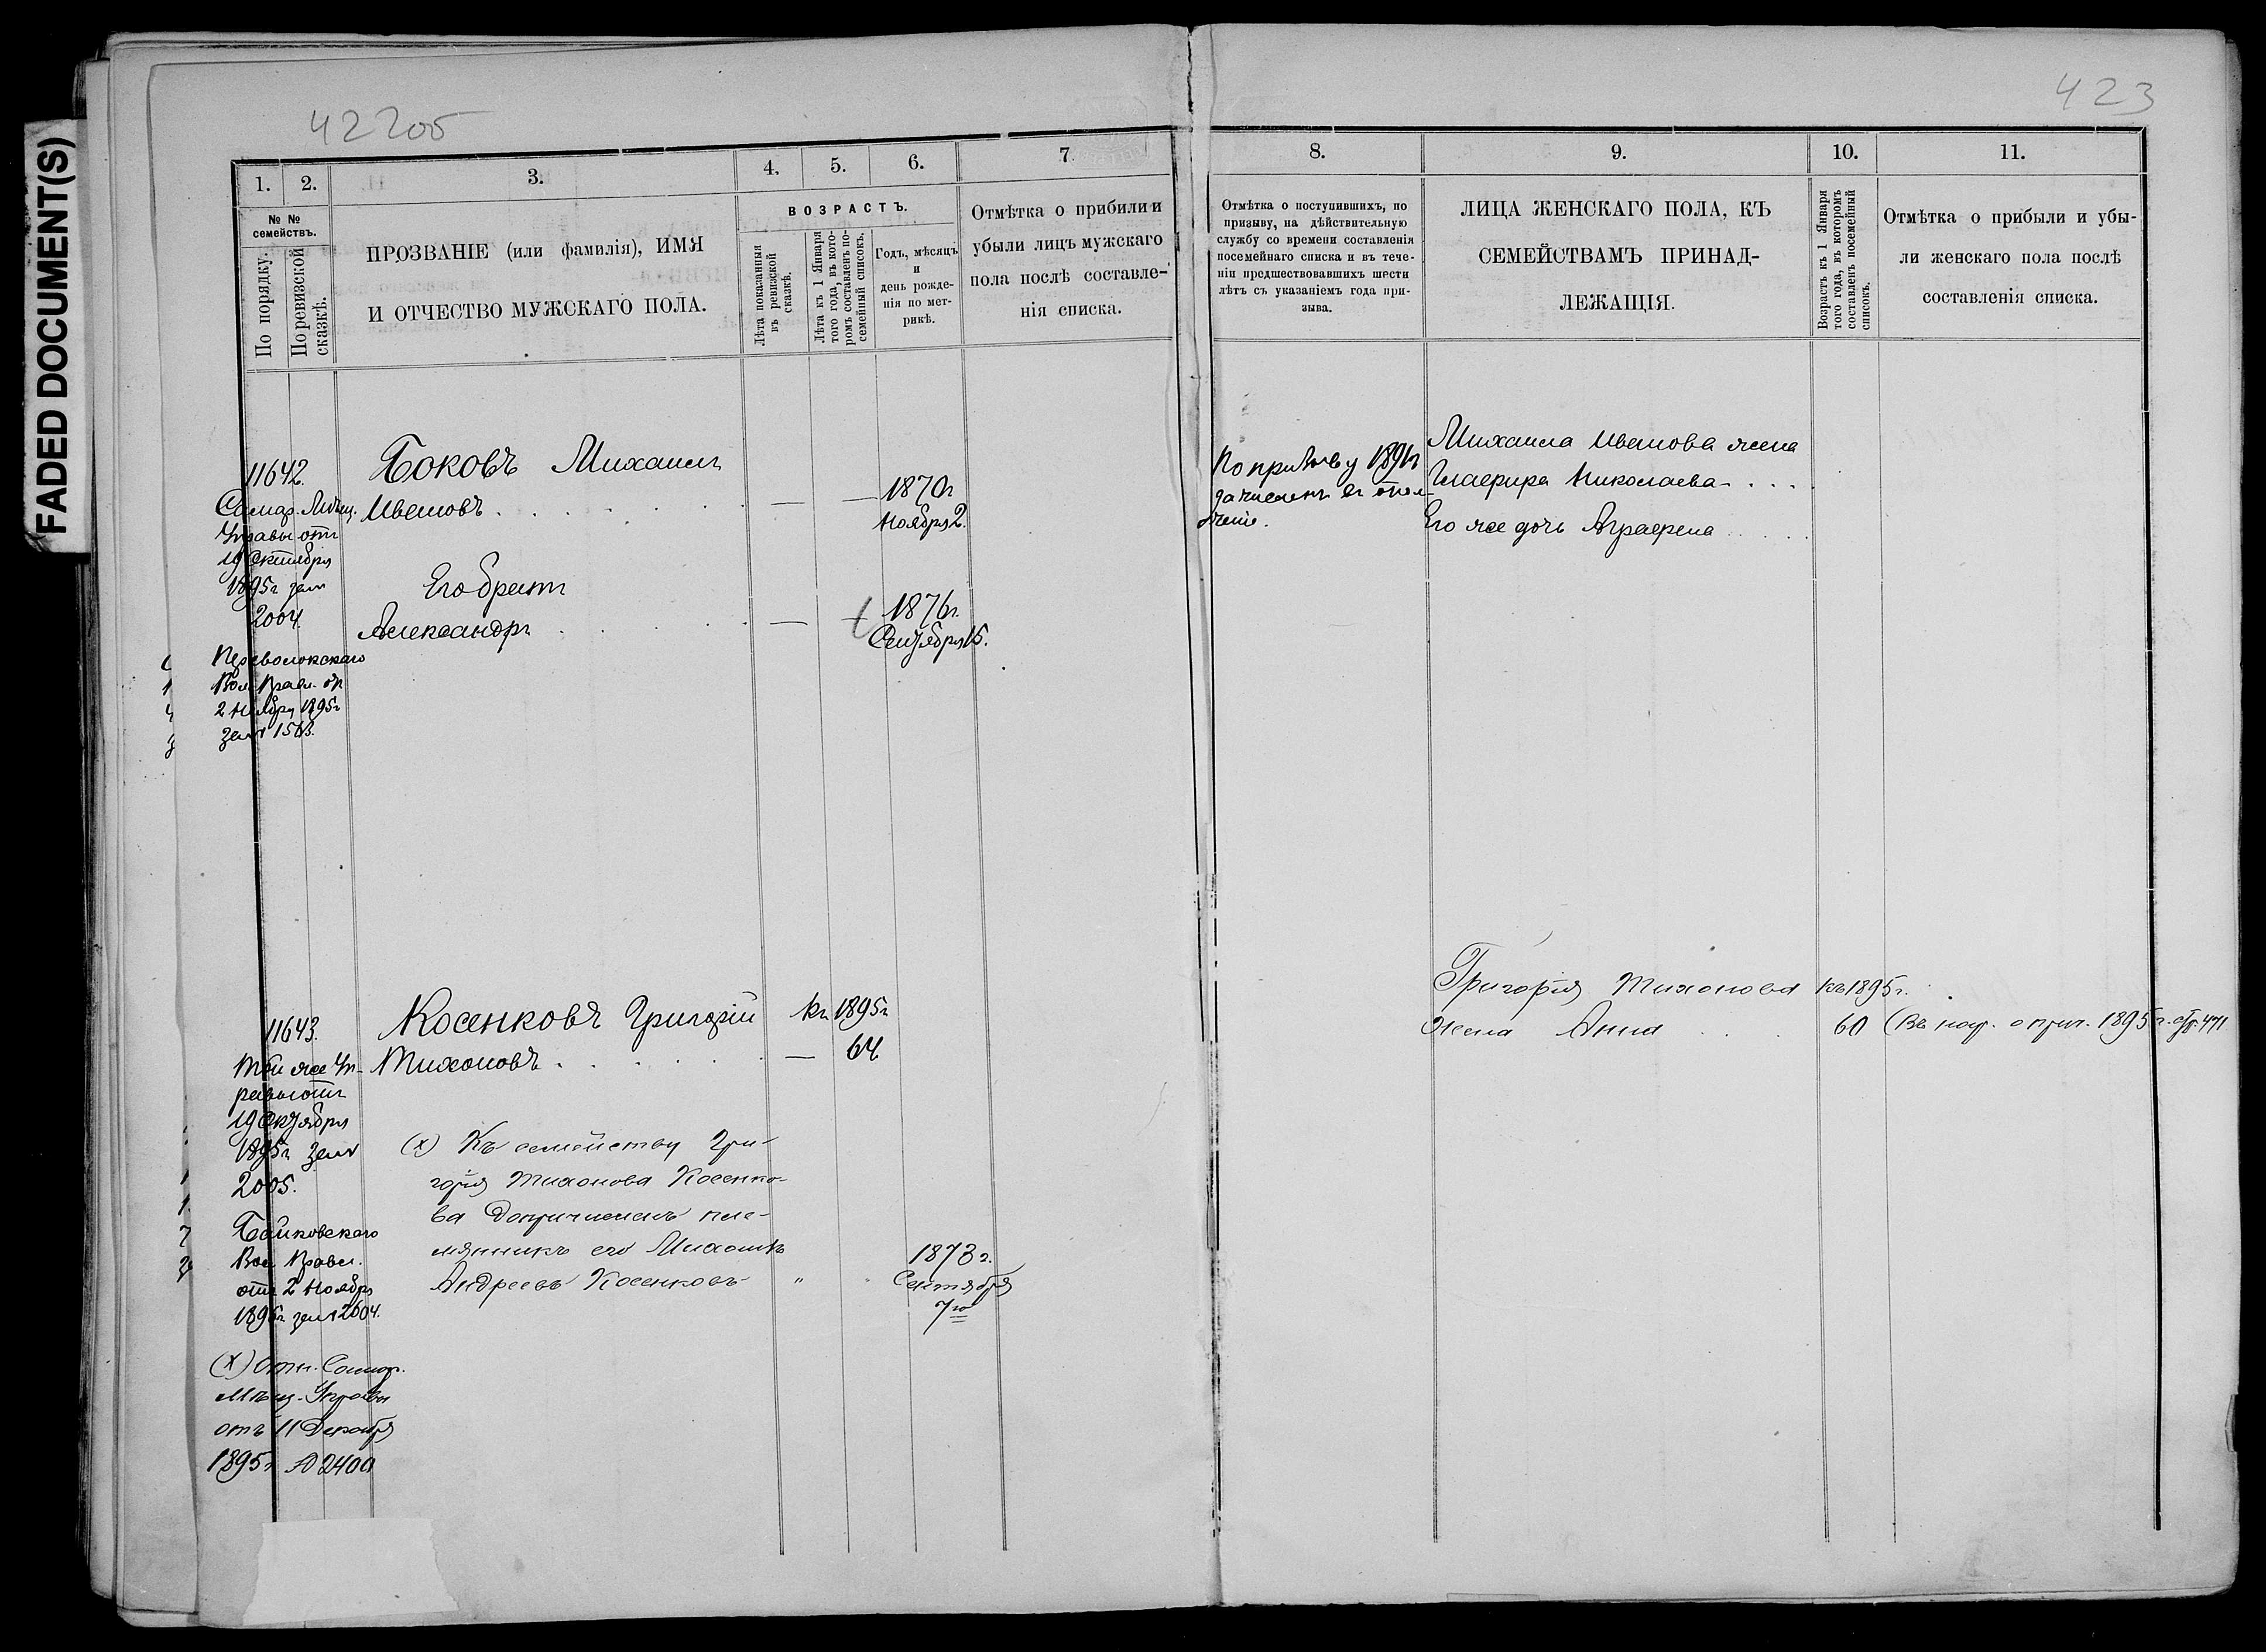 FADED DOCUMENT(S)
422об
423
1.
2.
3.
4.
5.
6.
7.
8.
9.
10.
11.
№ №
семействъ.
По порядку.
По ревизской
сказкѣ.
ПРОЗВАНІЕ (или фамилія), ИМЯ
И ОТЧЕСТВО МУЖСКАГО ПОЛА.
ВОЗРАСТЪ.
Лѣта показанныя
въ ревизской
сказкѣ.
Лѣта къ 1 Января
того года, въ кото-
ромъ составленъ по-
семейный списокъ.
Годъ, мѣсяцъ
и
день рожде-
нія по мет-
рикѣ.
Отмѣтка о прибыли и
убыли лицъ мужскаго
пола послѣ составле-
нія списка.
Отмѣтка о поступившихъ, по
призыву, на дѣйствительную
службу со времени составленія
посемейнаго списка и въ тече-
ніи предшествовавшихъ шести
лѣтъ съ указаніемъ года при-
зыва.
ЛИЦА ЖЕНСКАГО ПОЛА, КЪ
СЕМЕЙСТВАМЪ ПРИНАД-
ЛЕЖАЩІЯ.
Возрастъ къ 1 Января
того года, въ которомъ
составленъ посемейный
списокъ.
Отмѣтка о прибыли и убы-
ли женскаго пола послѣ
составленія списка.
11642.
Самар. Мѣщ.
Управы отъ
19 Октября
1895г за №
2004.
Переволокскаго
Вол. Правл. от
2 Ноября 1895г
за №
Боковъ Михаилъ
Ивановъ . . . . . . — —
1870г
Ноября 2.
Его братъ
Александръ . . . . . — —
1876г.
Сентября 15.
По призыву 1891г
зачисленъ въ опол-
ченіе.
Михаила Иванова жена
Глафира Николаева . . . .
Его же дочь Аграфена . . . .
11643.
Той же Уп-
равы отъ
19 Октября
1895г за №
2005.
Вол. Правл.
отъ 2 Ноября
1895г за № 2604.
Косенковъ Григорій
Тихоновъ . . . . . . —
Къ 1895г
64
(х) Къ семейству Гри-
горія Тихонова Косенко-
ва Допричисленъ пле-
мянникъ его Михаилъ
Андреевъ Косенковъ "
1873г.
Сентября
7го
(х) Отн. Самар.
Мѣщ. Управы
отъ 11 Декабря
1895г №
Григорія Тихонова
Жена Анна . .
къ 1895г.
60
(Въ 1895г. стр. 471